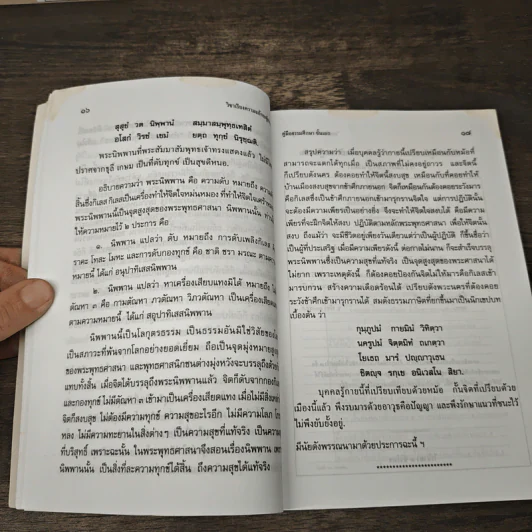 ๑๖
วิชาเรียงความแก้กระทู้
สุสุขํ วต นิพฺพานํ สมฺมาสมฺพุทฺธเทสิตํ
อโสกํ วิรชํ เขมํ ยตฺถ ทุกฺขํ นิรุชฺฌติ.
พระนิพพานที่พระสัมมาสัมพุทธเจ้าทรงแสดงแล้ว ไม่มี
ปราศจากธุลี เกษม เป็นที่ดับทุกข์ เป็นสุขดีหนอ.
อธิบายความว่า พระนิพพาน คือ ความดับ หมายถึง ความ
สิ้นซึ่งกิเลส กิเลสเป็นเครื่องทำให้จิตใจหม่นหมอง ที่ทำให้จิตใจ
พระนิพพานนี้เป็นจุดสูงสุดของพระพุทธศาสนา นิพพานนั้น ท่าน
ให้ความหมายไว้ ๒ ประการ คือ
๑. นิพพาน แปลว่า ดับ หมายถึง การดับเพลิงกิเลส
ราคะ โทสะ โมหะ และการดับกองทุกข์ คือ ชาติ ชรา มรณะ ตาม
หมายนี้ ได้แก่ อนุปาทิเสสนิพพาน
๒. นิพพาน แปลว่า หาเครื่องเสียบแทงมิได้ หมายถึง
ตัณหา ๓ คือ กามตัณหา ภวตัณหา วิภวตัณหา เป็นเครื่องเสียบ
ตามความหมายนี้ ได้แก่ สอุปาทิเสสนิพพาน
นิพพานนี้เป็นโลกุตรธรรม เป็นธรรมอันมิใช่วิสัยของ
เป็นสภาวะที่พ้นจากโลกอย่างยอดเยี่ยม ถือเป็นจุดมุ่งหมายสูง
พระพุทธศาสนา และพุทธศาสนิกชนต่างมุ่งหวังจะบรรลุถึงด้วย
แทบทั้งสิ้น เมื่อจิตได้บรรลุถึงพระนิพพานแล้ว จิตก็ดับจากกอง
และกองทุกข์ ไม่มีตัณหา ๓ เข้ามาเป็นเครื่องเสียดแทง เมื่อไม่มีสิ่ง
ก็สงบสุข ไม่ต้องมีความทุกข์ ความสุขอะไรอีก ไม่มีความโลภ
หลง ไม่มีความทะยานในสิ่งต่างๆ เป็นความสุขที่แท้จริง เป็นความ
ที่บริสุทธิ์ เพราะฉะนั้น ในพระพุทธศาสนาจึงสอนเรื่องนิพพาน
นิพพานนั้น เป็นสิ่งที่ละความทุกข์ได้สิ้น ถึงความสุขได้แท้จริง
คู่มือธรรมศึกษา ชั้นเอก
๑๗
สรุปความว่า เมื่อบุคคลรู้ว่ากายนี้เปรียบเหมือนกับหม้อที่
สามารถจะแตกได้ทุกเมื่อ เป็นสภาพที่ไม่คงอยู่ถาวร และจิตนี้
ก็เปรียบดังนคร ต้องคอยทำให้จิตนี้สงบสุข เหมือนกับที่คอยทำให้
บ้านเมืองสงบสุขจากข้าศึกภายนอก จิตก็เหมือนกันต้องคอยระวังมาร
คือกิเลสซึ่งเป็นข้าศึกภายนอกเข้ามารุกรานจิตใจ แต่การปฏิบัตินั้น
จะต้องมีความเพียรเป็นอย่างยิ่ง จึงจะทำให้จิตใจสงบได้ คือมีความ
เพียรที่จะฝึกจิตให้สงบ ปฏิบัติตามหลักพระพุทธศาสนา เพื่อความ
สงบ ถึงแม้ว่าจะมีชีวิตอยู่เพียงวันเดียวแต่ว่าเป็นผู้ปฏิบัติ ก็ชื่อว่า
เป็นผู้ที่ประเสริฐ เมื่อมีความเพียรดังนี้ ต่อกาลไม่นาน ก็จะสำเร็จบรรลุ
พระนิพพานซึ่งเป็นความสุขที่แท้จริง เป็นจุดสูงสุดของพระศาสนาได้
ไม่ยาก เพราะเหตุดังนี้ ก็ต้องคอยป้องกันจิตไม่ให้มารคือกิเลสเข้า
มารบกวน สร้างความเดือดร้อนได้ เปรียบดังพระนครที่ต้องคอย
ระวังข้าศึกเข้ามารุกรานได้ สมดังธรรมภาษิตที่ยกขึ้นมาเป็นนิกเขปบท
เบื้องต้น ว่า
กุมฺภูปมํ กายมิมํ วิทิตฺวา
นครูปมํ จิตฺตมิทํ ถเกตฺวา
โยเธถ มารํ ปญฺญาวุเธน
ชิตญฺจ รกฺเข อนิเวสโน สิยา.
บุคคลรู้กายนี้ที่เปรียบเทียบด้วยหม้อ กั้นจิตที่เปรียบด้วย
เมืองนี้แล้ว พึงรบมารด้วยอาวุธคือปัญญา และพึงรักษาแนวที่ชนะไว้
ไม่พึงยับยั้งอยู่.
มีนัยดังพรรณนามาด้วยประการฉะนี้ ฯ
************************